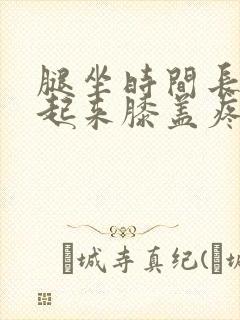 腿坐時間長
起来膝盖疼
城寺真纪(城